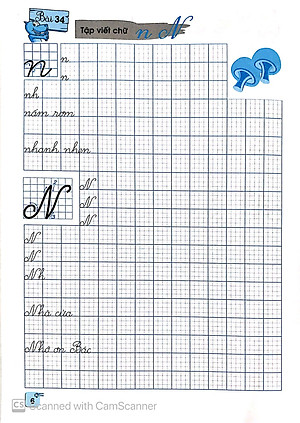 Bài 34
Tập viết chữ n N
n
n
n
nh
nấm rơm
nhanh nhẹn
N
N
N
N
N
N
Nh
Nhà cửa
Nhớ ơn Bác
6
CS Scanned with CamScanner